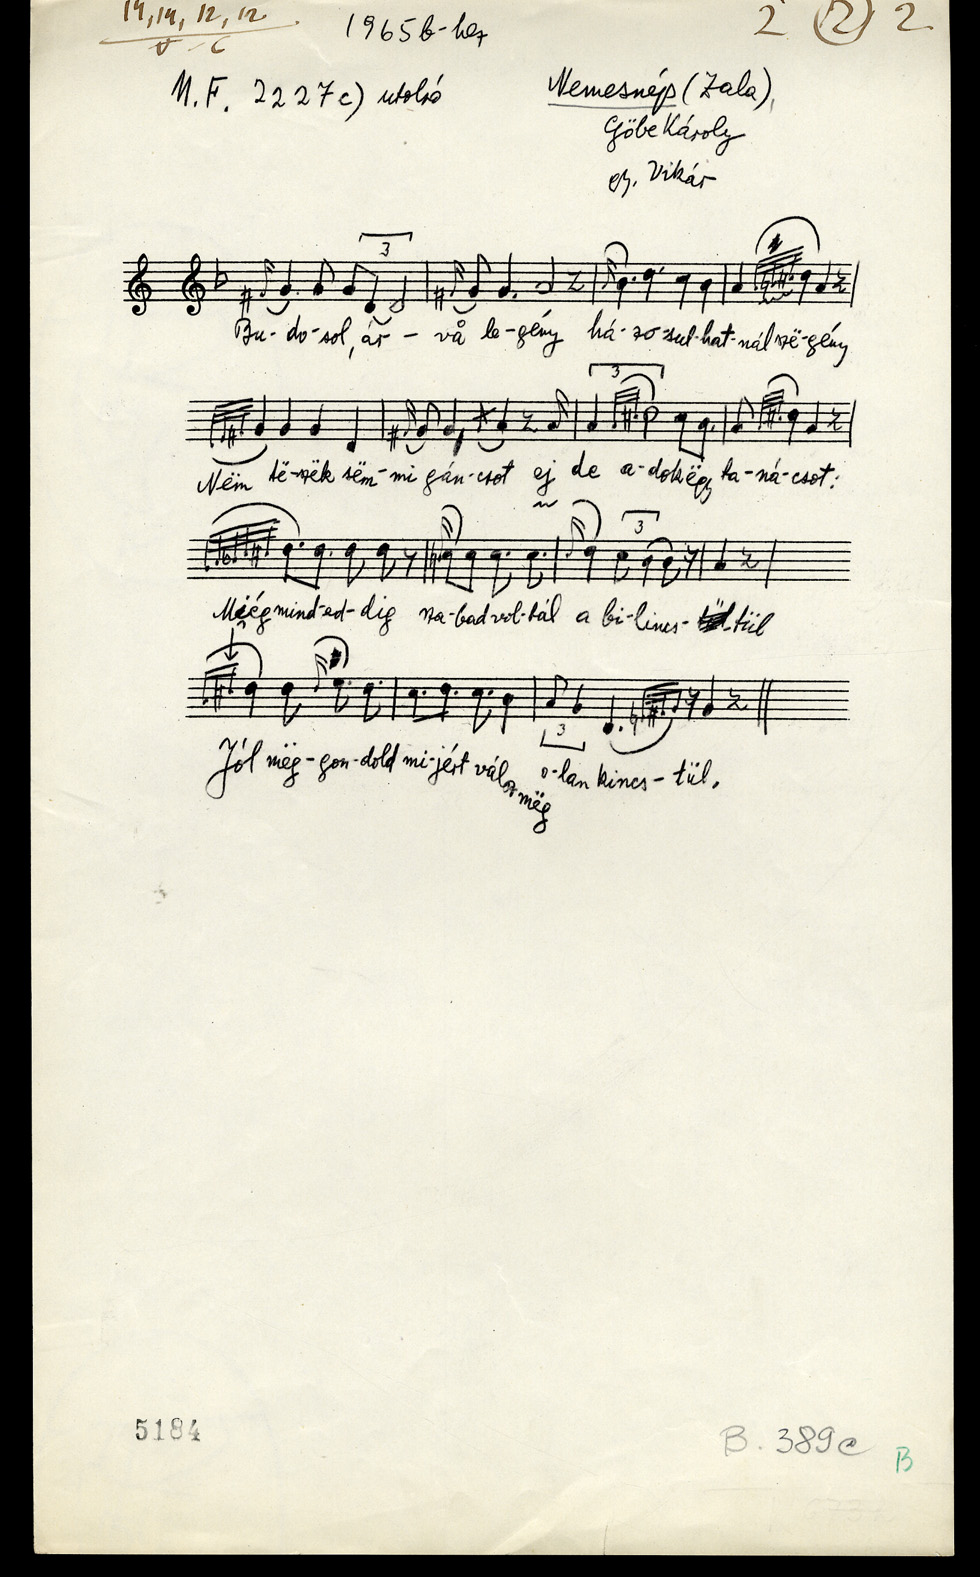 14, 14, 12, 12
1965b-hez
2 (2) 2
M.F. 2227c) utolsó
Nemesnép (Zala),
Göbe Károly
gy. Vikár
3
Bu-do-sol, ár - vå le-gény há-zo-sul-hat-nál szë-gény
3
Nëm të-szëk sëm-mi gán-csot ej de a-dok ëgy ta-ná-csot:
3
Miég mind-ed-dig sza-bad vol-tál a bi-lincs-tül
Jól mëg-gon-dold mi-jért vál
3
o-lan kincs-tül.
mëg
5184
B. 389e
B